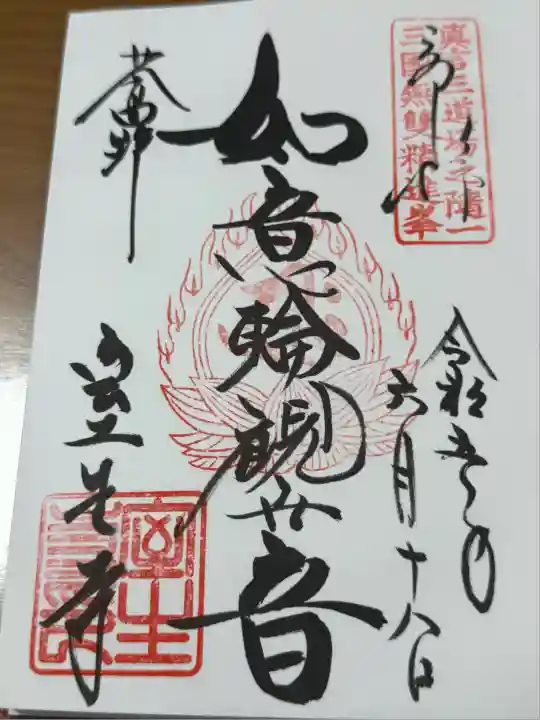 真言三道場之隨一
三国無雙精進峯
奉拝
令和五年
六月十八日
如意輪観世音
室生寺
室生